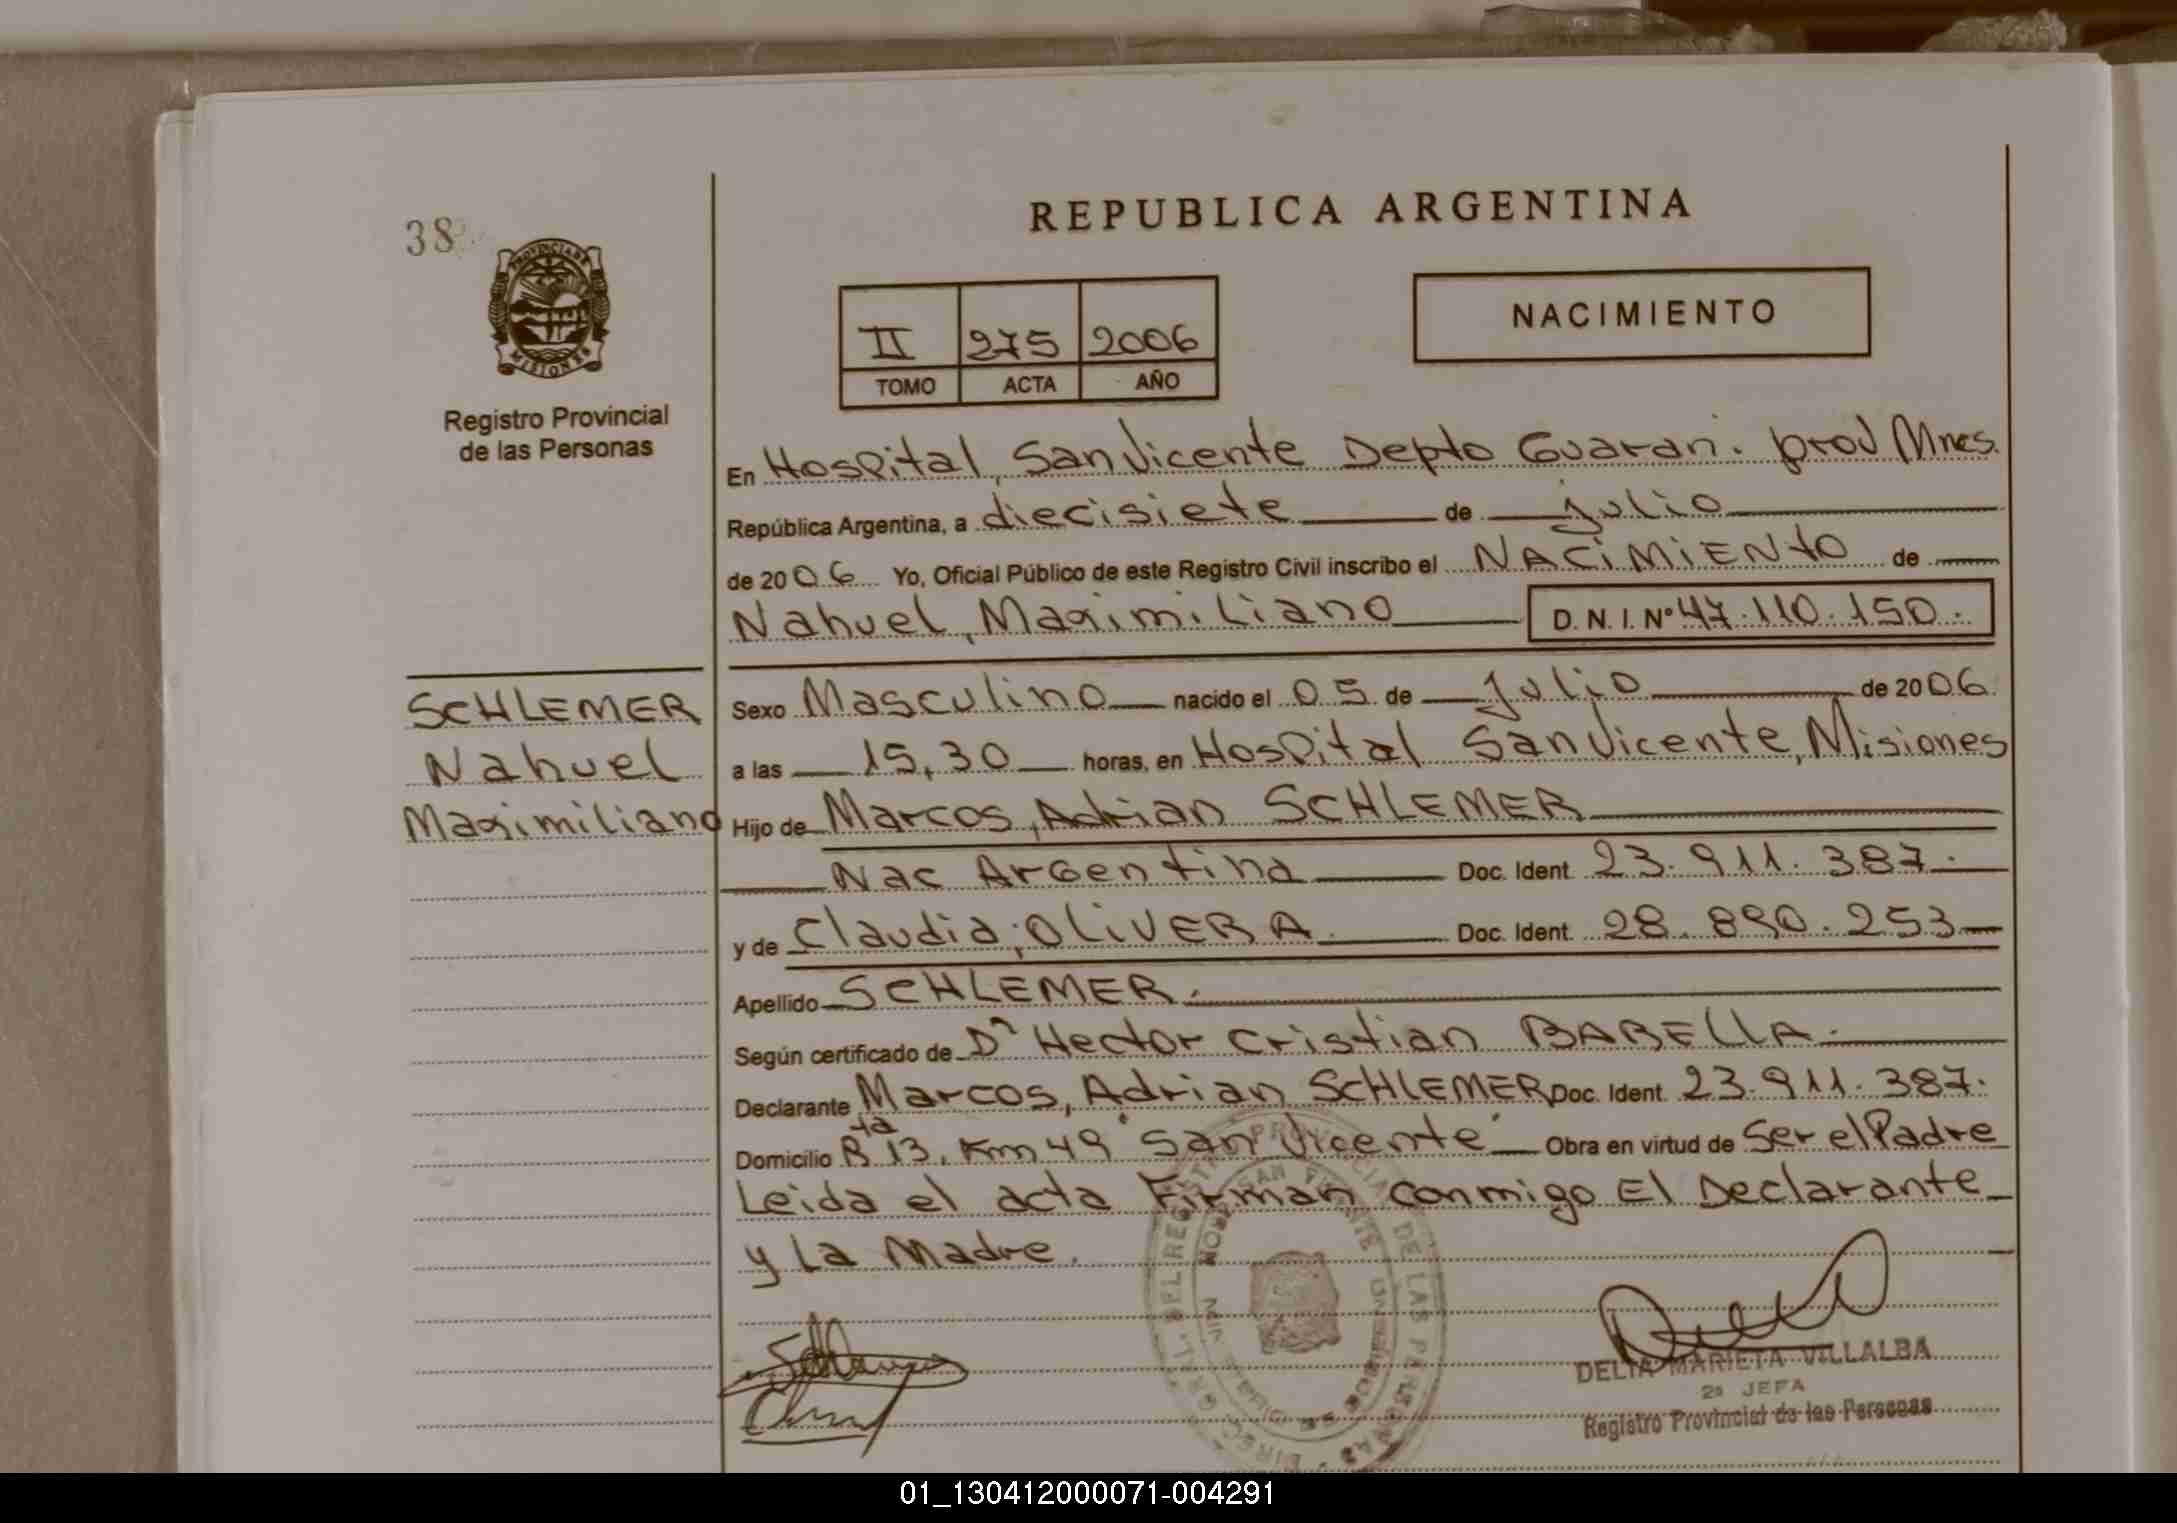 38
PROVINCIA DE
MISIONES
Registro Provincial
de las Personas
REPUBLICA ARGENTINA
II 275 2006
TOMO ACTA AÑO
NACIMIENTO
En Hospital, San Vicente Depto Guarani. prov Mnes.
República Argentina, a diecisiete de julio
de 2006 Yo, Oficial Público de este Registro Civil inscribo el NACIMIENTO de
Nahuel, Maximiliano D. N. I. Nº 47.110.150.
SCHLEMER
Nahuel
Maximiliano
Sexo Masculino nacido el 05 de julio de 2006
a las 15,30 horas, en Hospital San Vicente, Misiones
Hijo de Marcos, Adrian SCHLEMER
Nac Argentina Doc. Ident. 23.911.387.
y de Claudia; OLIVERA Doc. Ident. 28.890.253
Apellido SCHLEMER.
Según certificado de Dr Hector Cristian BARELLA.
Declarante Marcos, Adrian SCHLEMER Doc. Ident. 23.911.387.
Domicilio Rta 13, Km 49 San Vicente Obra en virtud de Ser el Padre
Leida el acta Firman conmigo El Declarante
y La Madre.
DELIA MARIETA VILLALBA
2a JEFA
Registro Provincial de las Personas
01_130412000071-004291